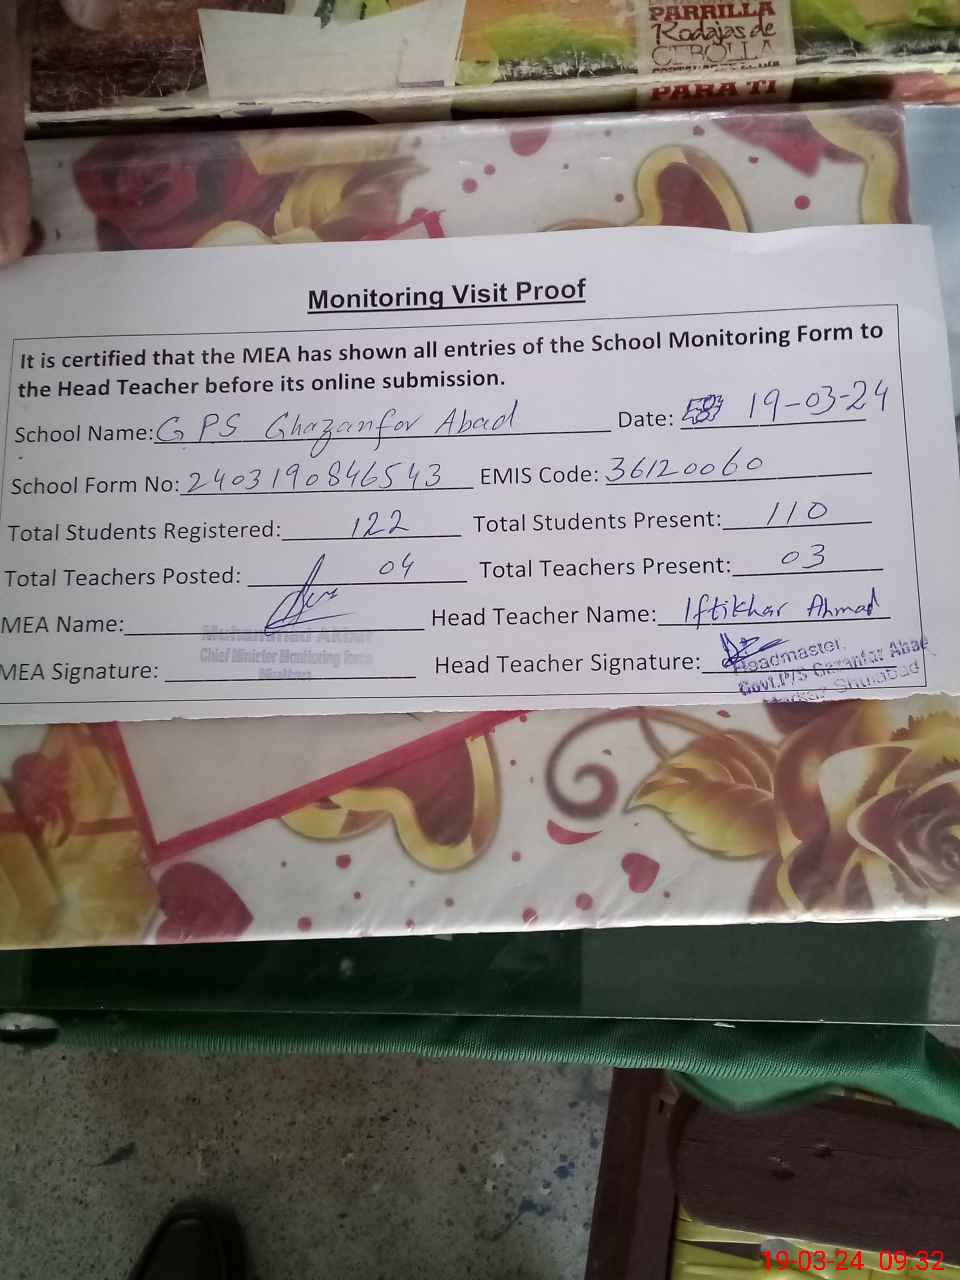 PARRILLA
Rodajas de
CEBOLLA
PARA TI
Monitoring Visit Proof
It is certified that the MEA has shown all entries of the School Monitoring Form to
the Head Teacher before its online submission.
School Name: GPS Ghazanfar Abad Date: 19-03-24
School Form No: 2403190846543 EMIS Code: 36120060
Total Students Registered: 122 Total Students Present: 110
Total Teachers Posted: 04 Total Teachers Present: 03
MEA Name: Head Teacher Name: Iftikhar Ahmad
Muhammad Akbar
Chief Minister Monitoring Force
Multan
MEA Signature: Head Teacher Signature:
Headmaster
Govt.P/S Gazanfar Abad
Markaz Shujabad
19-03-24 09:32